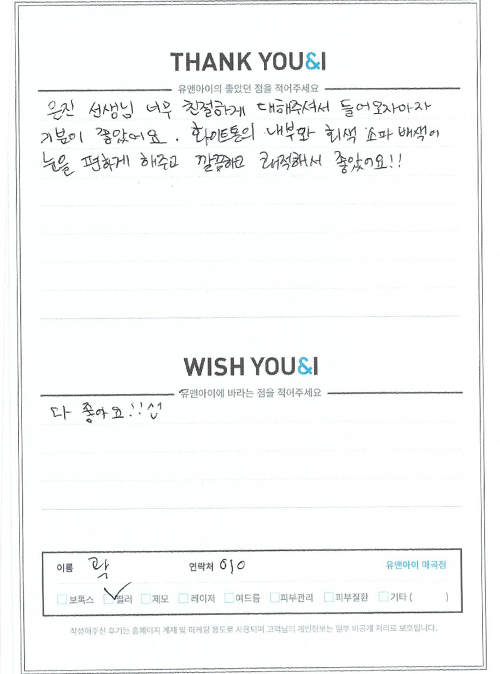 THANK YOU&I
유앤아이의 좋았던 점을 적어주세요
은진 선생님 너무 친절하게 대해주셔서 들어오자마자
기분이 좋았어요. 화이트톤의 내부와 회색 소파 배색이
눈을 편하게 해주고 깔끔하고 쾌적해서 좋았어요!!
WISH YOU&I
유앤아이에 바라는 점을 적어주세요
다 좋아요!!
이름 곽 연락처 010 유앤아이 마곡점
보톡스 필러 제모 레이저 여드름 피부관리 피부질환 기타 ( )
작성해주신 후기는 홈페이지 게재 및 마케팅 용도로 사용되며 고객님의 개인정보는 일부 비공개 처리로 보호됩니다.